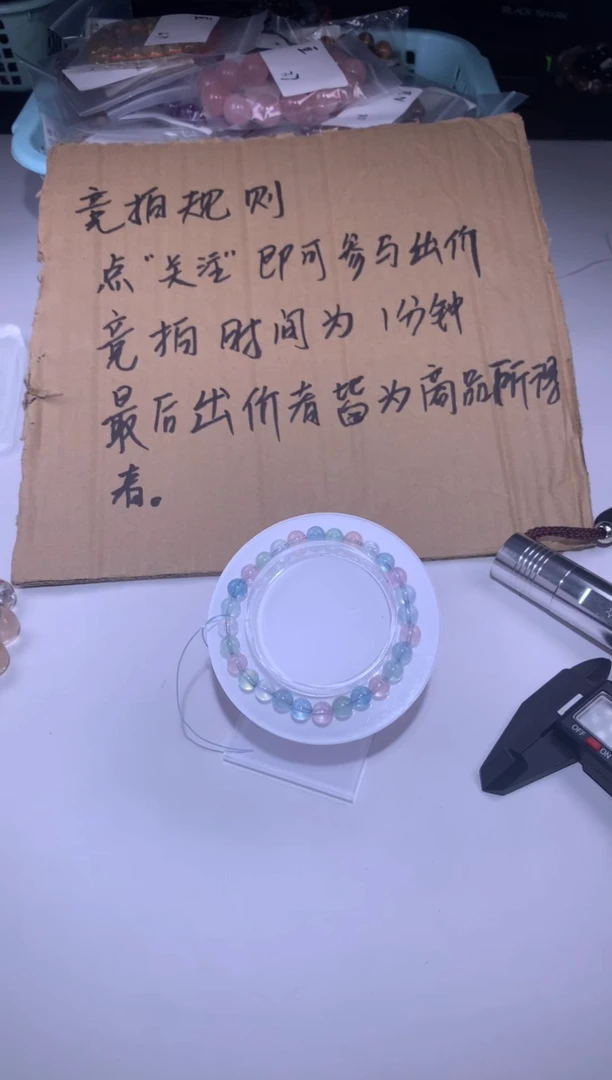 BLACK SHARK
竞拍规则
点“关注”即可参与出价
竞拍时间为1分钟
最后出价者皆为商品所得
者。
OFF ON